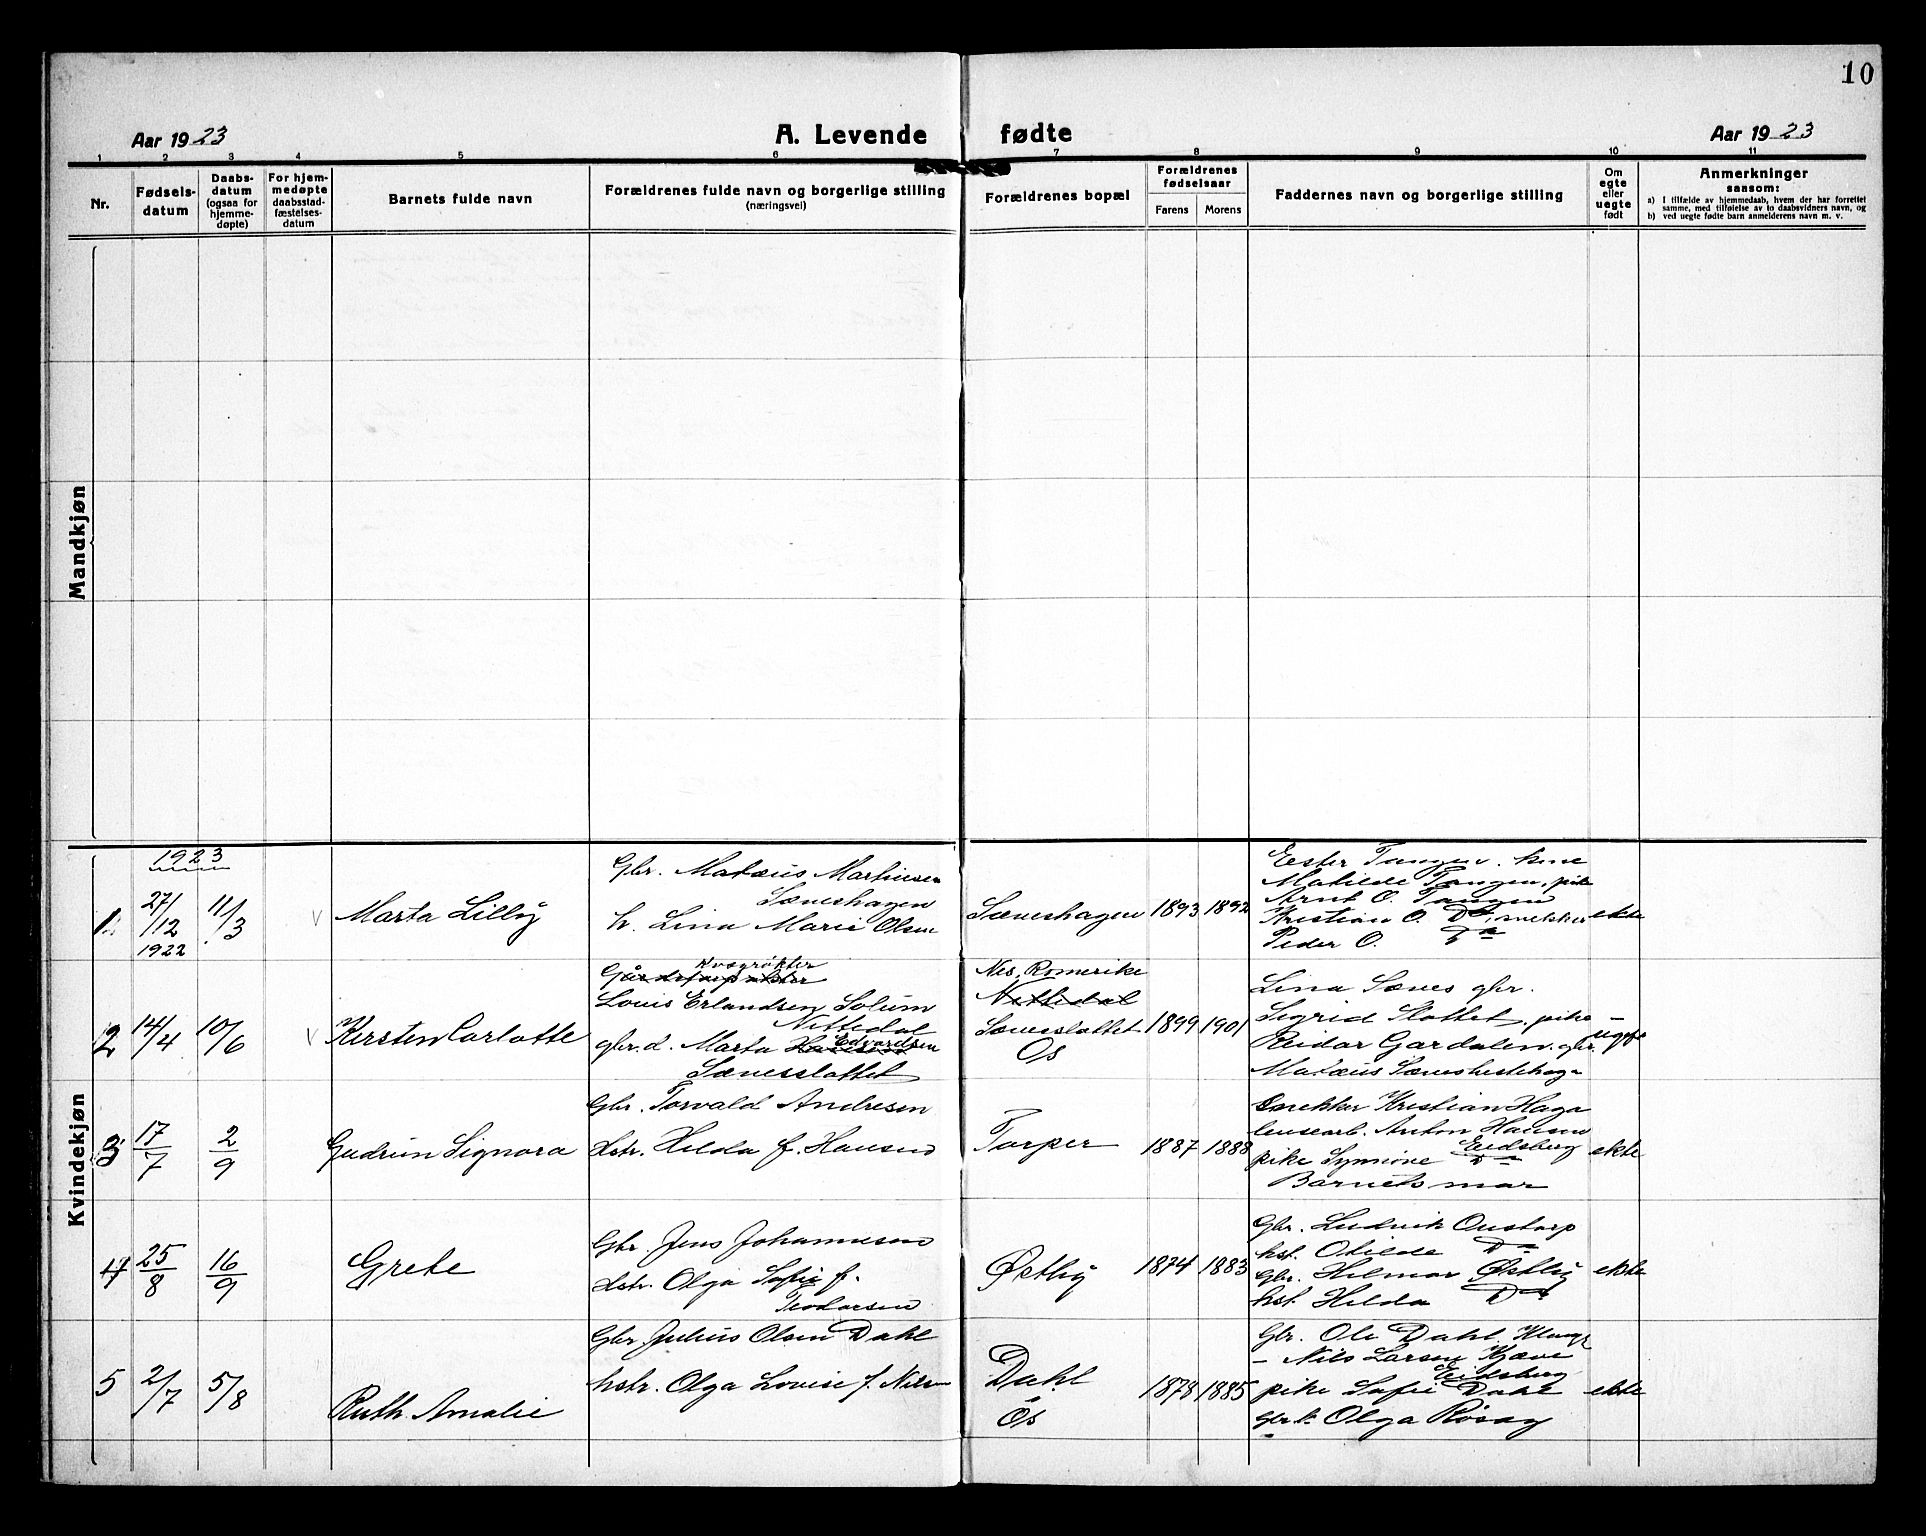 10
Aar 1923
A. Levende fødte
Aar 1923
1 2 3 4 5 6 7 8 9 10 11
Nr.
Fødselsdatum
Daabsdatum (ogsaa for hjemmedøpte)
For hjemmedøpte daabsstadfæstelsesdatum
Barnets fulde navn
Forældrenes fulde navn og borgerlige stilling
(næringsvei)
Forældrenes bopæl
Forældrenes fødselsaar
Farens Morens
Faddernes navn og borgerlige stilling
Om egte eller uegte født
Anmerkninger
saasom:
a) I tilfælde av hjemmedaab, hvem der har forrettet samme, med tilføielse av to daabsvidners navn, og
b) ved uegte fødte barn anmelderens navn m. v.
Mandkjøn
Kvindekjøn
1923
1
27/12
1922
11/3
Marta Lilly
Gbr. Matæus Martinsen
Sæveshagen
h. Lina Marie Olsen
Sæveshagen
1893 1892
Ester Tangen
Matilde Tangen, pike
Arnt O. Tangen
Kristian O. Do, snekker
Peder O. Do
ekte
2
14/4
10/6
Kirsten Carlotte
Kvægrøkter
Louis Erlandsen Solum
Nittedal
gbr.d. Marta Edvardsen
Sævesslottet
Nes, Romerike
Nittedal
Sævesslottet
Os
1899 1901
Lina Sæves gbr.
Sigrid Slottet, pike
Reidar Gardalen. gbr.
Matæus Sæveshestehage
uegte
3
17/7
2/9
Gudrun Signora
Gbr. Torvald Andresen
Hstr. Hilda f. Hansen
Torper
1887 1888
Snekker Kristian Haga
Anton Hansen
Eidsberg
pike Synnöve Do
Barnets mor
ekte
4
25/8
16/9
Grete
Gbr. Jens Johannesen
Hstr. Olga Sofie f.
Teodorsen
Østby
1874 1883
Gbr. Ludvik Onstorp
hst. Otilde Do
Gbr. Hilmar Østby
hst. Hilda Do
ekte
5
2/7
5/8
Ruth Amalie
Gbr. Julius Olsen Dahl
hstr. Olga Lovise f. Nilsen
Dahl
Os
1878 1885
Gbr. Ole Dahl
– Nils Larsen Kjæve
Eidsberg
pike Sofie Dahl
Olga Rösæg
ekte